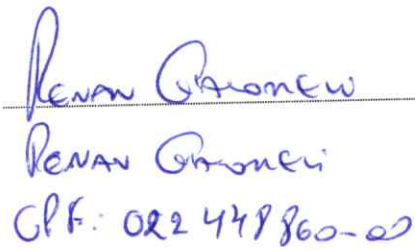 Renan Giacomeli
Renan Giacomeli
CPF: 022 448 860-00